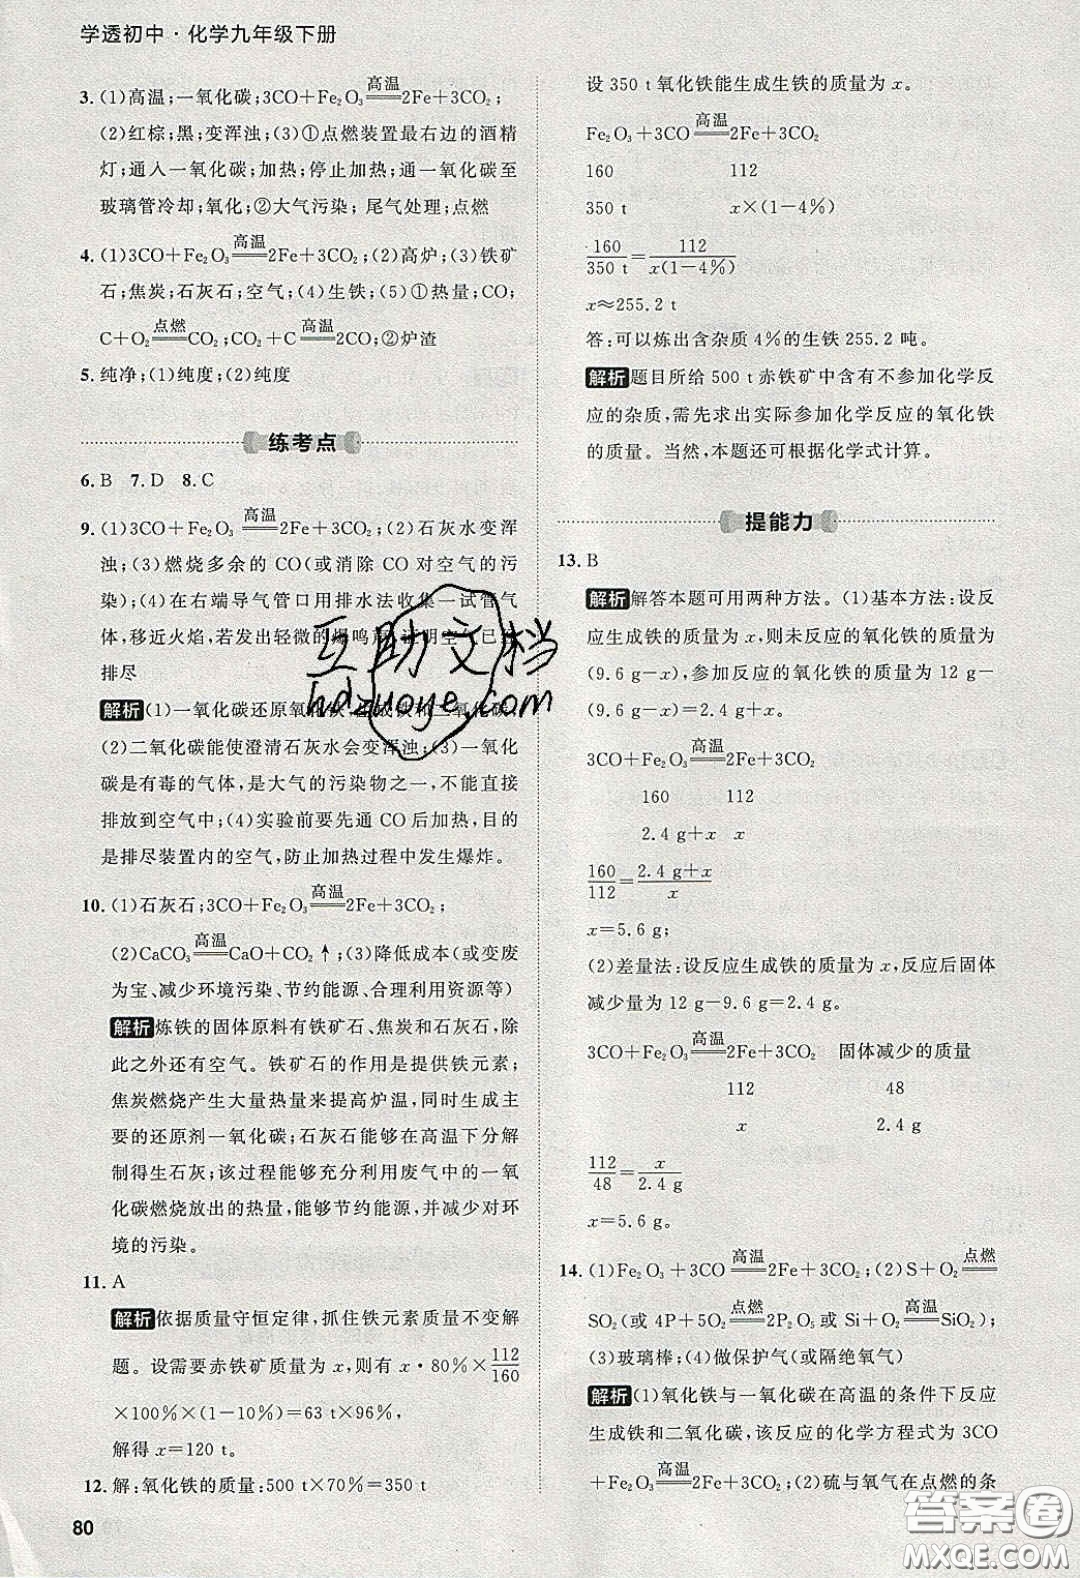 学透初中·化学九年级下册
3. (1)高温;一氧化碳;3CO+Fe₂O₃ 高温═ 2Fe+3CO₂;
(2)红棕;黑;变浑浊;(3)①点燃装置最右边的酒精
灯;通入一氧化碳;加热;停止加热;通一氧化碳至
玻璃管冷却;氧化;②大气污染;尾气处理;点燃
4. (1)3CO+Fe₂O₃ 高温═ 2Fe+3CO₂;(2)高炉;(3)铁矿
石;焦炭;石灰石;空气;(4)生铁;(5)①热量;CO;
C+O₂ 点燃═ CO₂;CO₂+C 高温═ 2CO;②炉渣
5. 纯净;(1)纯度;(2)纯度
练考点
6. B 7. D 8. C
9. (1)3CO+Fe₂O₃ 高温═ 2Fe+3CO₂;(2)石灰水变浑
浊;(3)燃烧多余的CO(或消除CO对空气的污
染);(4)在右端导气管口用排水法收集一试管气
体,移近火焰,若发出轻微的爆鸣声,证明空气已经
排尽
解析(1)一氧化碳还原氧化铁,生成铁和二氧化碳;
(2)二氧化碳能使澄清石灰水会变浑浊;(3)一氧化
碳是有毒的气体,是大气的污染物之一,不能直接
排放到空气中;(4)实验前要先通CO后加热,目的
是排尽装置内的空气,防止加热过程中发生爆炸。
10. (1)石灰石;3CO+Fe₂O₃ 高温═ 2Fe+3CO₂;
(2)CaCO₃ 高温═ CaO+CO₂↑;(3)降低成本(或变废
为宝、减少环境污染、节约能源、合理利用资源等)
解析 炼铁的固体原料有铁矿石、焦炭和石灰石,除
此之外还有空气。铁矿石的作用是提供铁元素;
焦炭燃烧产生大量热量来提高炉温,同时生成主
要的还原剂一氧化碳;石灰石能够在高温下分解
制得生石灰;该过程能够充分利用废气中的一氧
化碳燃烧放出的热量,能够节约能源,并减少对环
境的污染。
11. A
解析 依据质量守恒定律,抓住铁元素质量不变解
题。设需要赤铁矿质量为x,则有x·80%×112/160
×100%×(1-10%)=63 t×96%,
解得x=120 t。
12. 解:氧化铁的质量:500 t×70%=350 t
80
设350 t氧化铁能生成生铁的质量为x。
Fe₂O₃+3CO 高温═ 2Fe+3CO₂
160 112
350 t x×(1-4%)
160/350 t=112/x(1-4%)
x≈255.2 t
答:可以炼出含杂质4%的生铁255.2吨。
解析 题目所给500 t赤铁矿中含有不参加化学反
应的杂质,需先求出实际参加化学反应的氧化铁
的质量。当然,本题还可根据化学式计算。
提能力
13. B
解析 解答本题可用两种方法。(1)基本方法:设反
应生成铁的质量为x,则未反应的氧化铁的质量为
(9.6 g-x),参加反应的氧化铁的质量为12 g-
(9.6 g-x)=2.4 g+x,
3CO+Fe₂O₃ 高温═ 2Fe+3CO₂
160 112
2.4 g+x x
160/112=2.4 g+x/x
x=5.6 g;
(2)差量法:设反应生成铁的质量为x,反应后固体
减少量为12 g-9.6 g=2.4 g。
3CO+Fe₂O₃ 高温═ 2Fe+3CO₂ 固体减少的质量
112 48
x 2.4 g
112/48=x/2.4 g
x=5.6 g。
14. (1)Fe₂O₃+3CO 高温═ 2Fe+3CO₂;(2)S+O₂ 点燃═
SO₂(或4P+5O₂ 点燃═ 2P₂O₅或Si+O₂ 高温═ SiO₂)
(3)玻璃棒;(4)做保护气(或隔绝氧气)
解析 (1)氧化铁与一氧化碳在高温的条件下反应
生成铁和二氧化碳,该反应的化学方程式为3CO
+Fe₂O₃ 高温═ 2Fe+3CO₂;(2)硫与氧气在点燃的条
互助文档
hdzuoye.com
答案圈
MXQE.COM